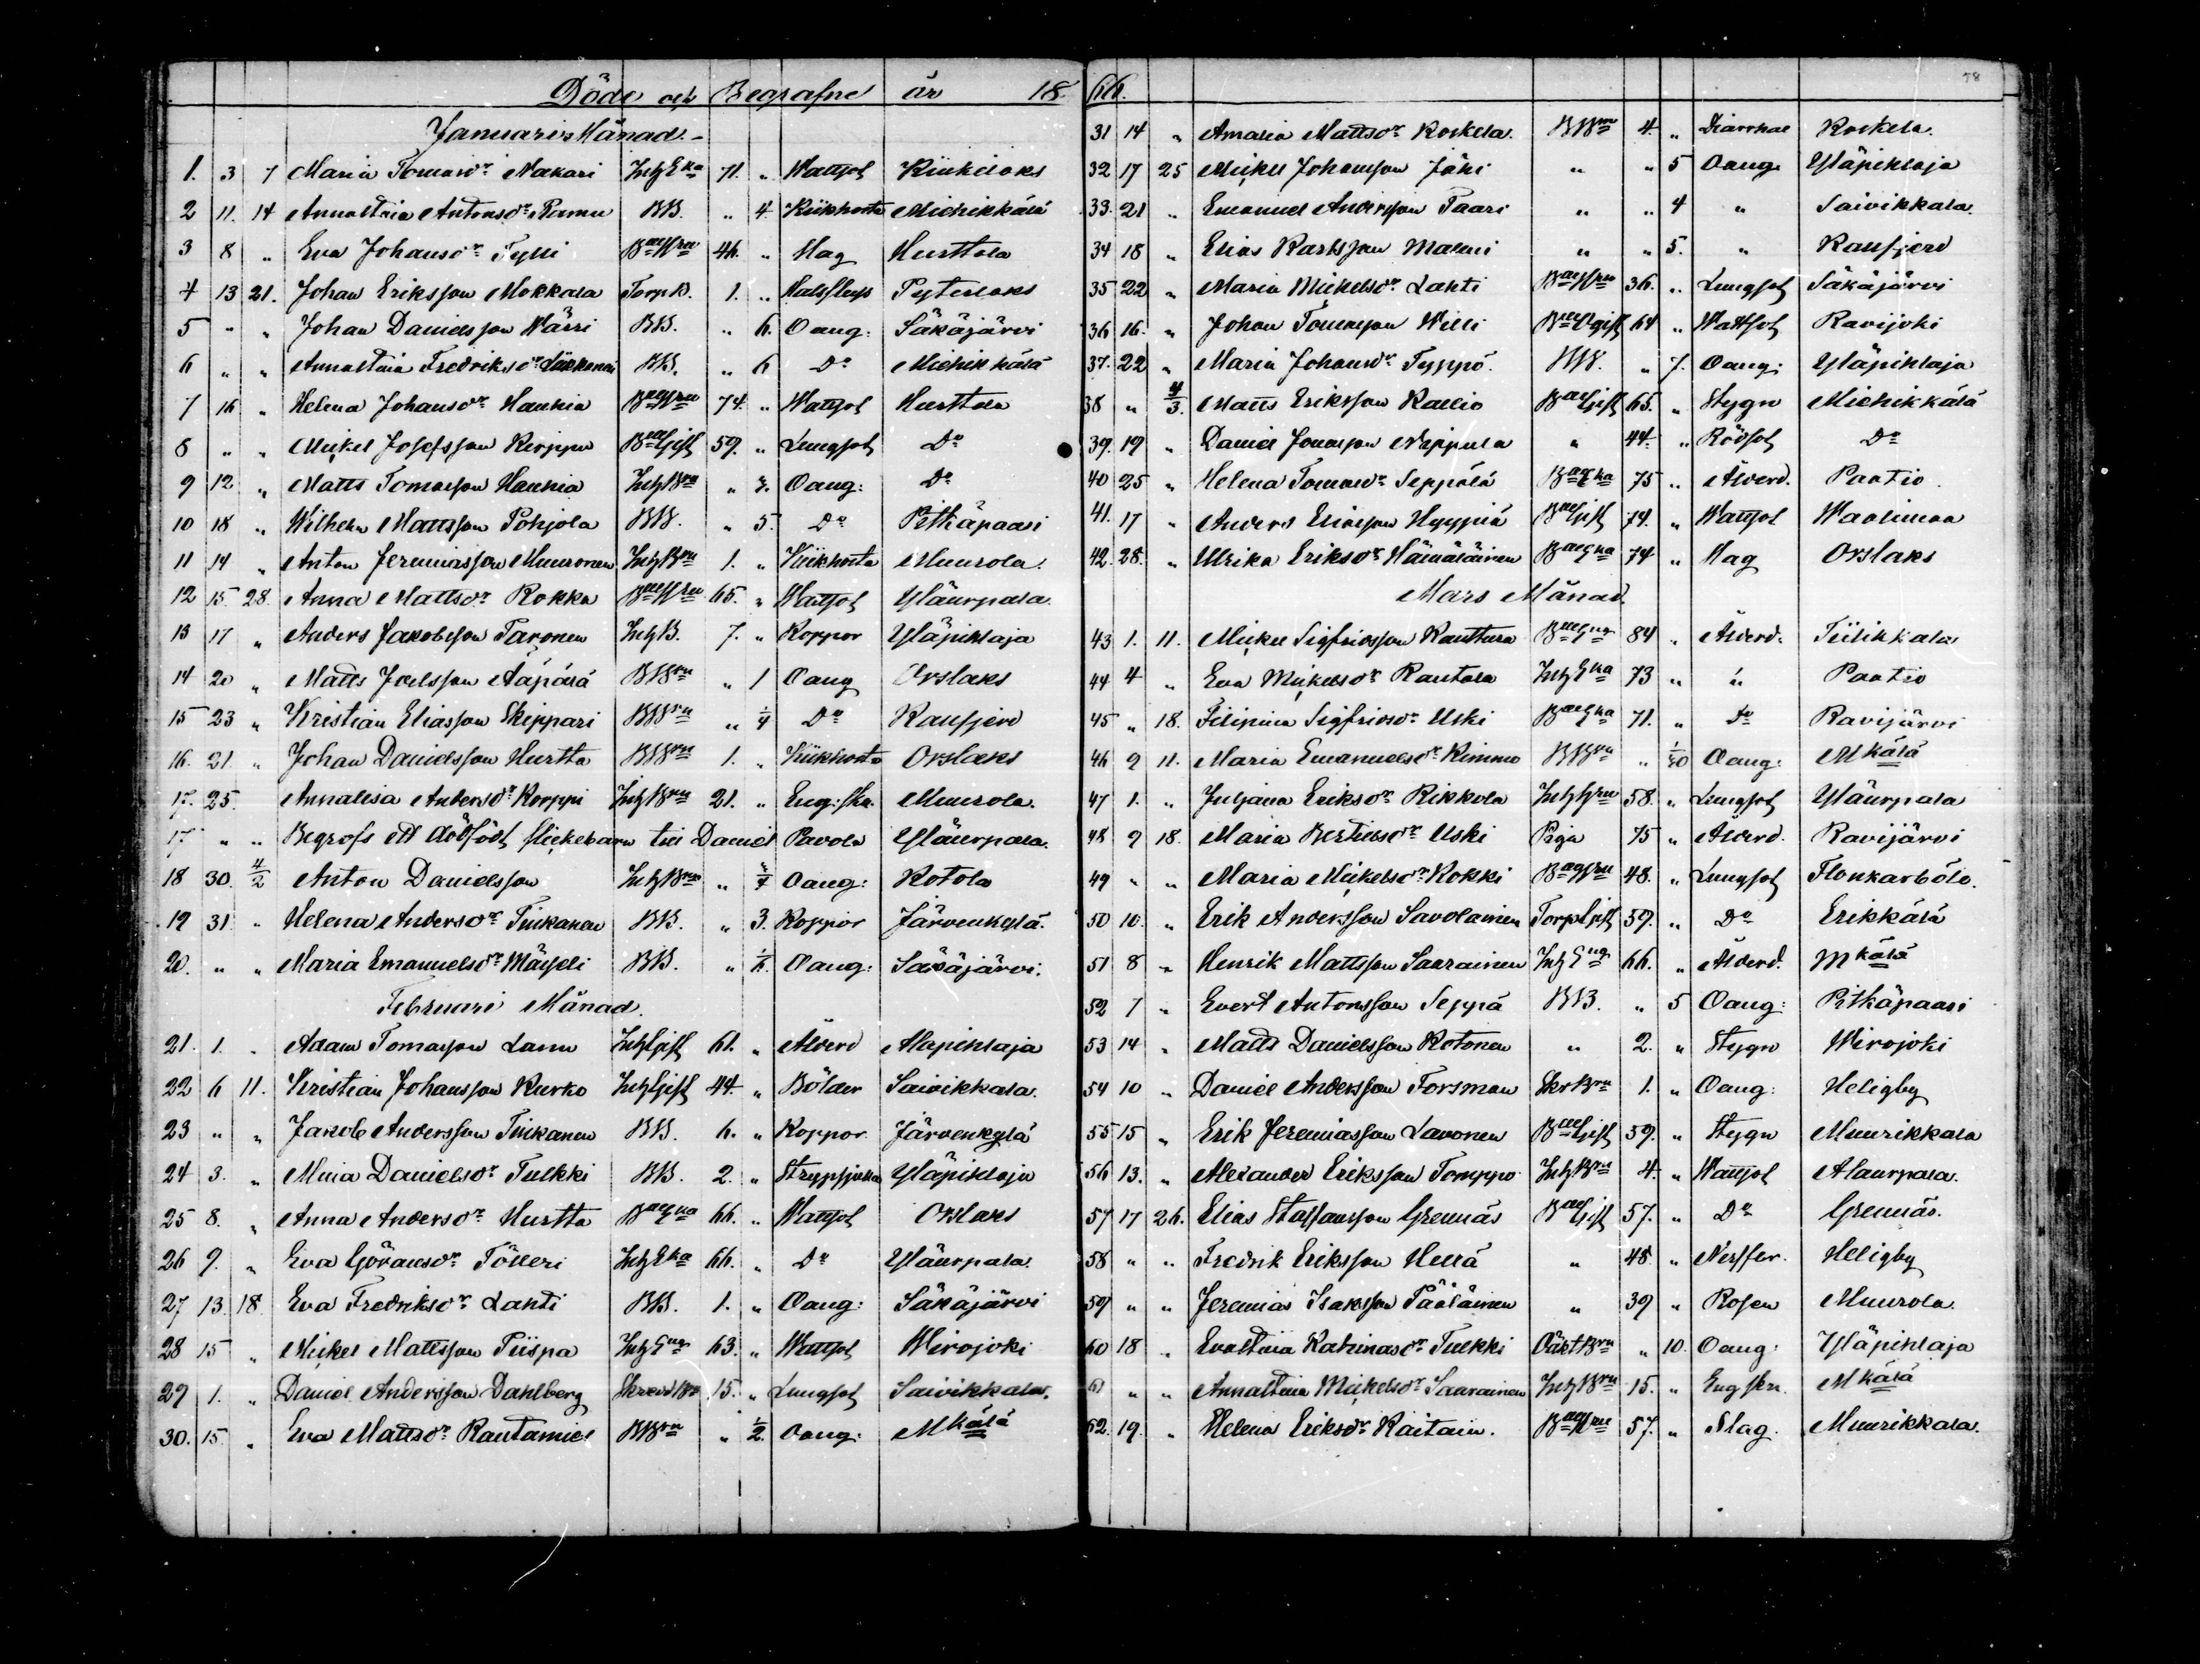 Döde och Begrafne år 1866.
58
Januari Månad.
1. 3 7 Maria Tomasdr Nakari InhEka 71. " Wattsot Kiukilaks
2 11. 14 Annastina Antonsdr Pamu BB. " 4 Kikhosta Miehikkälä
3 8 " Eva Johansdr Tylli 46. " Slag Hurttola
4 13 21. Johan Eriksson Mokkala Torp B. 1. " Pyterlaks
5 " " Johan Danielsson Wärri BB. " 6. Oang: Säkäjärvi
6 " " Annastina Fredriksdr BB. " 6 Do Miehikkälä
7 16 " Helena Johansdr Hauhia 74. " Wattsot Hurttola
8 " " Mickel Josefsson Kirppu BdeGift 59. " Lungsot Do
9 12 " Matts Tomasson Hauhia Inh Bn " Oang: Do
10 18 " Wilhelm Mattsson Pohjola BB. " 5. Do Pitkäpaasi
11 14 " Anton Jeremiasson Muuronen InhBn 1. " Kikhosta Muurola.
12 15. 28. Anna Mattsdr Rokka 65. " Wattsot Yläurpala.
13 17 " Anders Jakobsson Taronen Inh B. 7. " Koppor Yläpihlaja
14 20 " Matts Joelsson Aapärä BBrn " 1 Oang Orslaks
15 23 " Kristian Eliasson Skippari BBrn " 1/4 Do Kausjerd
16. 21. " Johan Danielsson Hurtta BBrn 1. " Kikhosta Orslaks
17. 25. Annalisa Andersdr Korppi InhBrn 21. " Eng: ska. Muurola.
17 " " Begrofs ett dödfödt flickebarn till Daniel Pavola Yläurpala.
18 30. 4/2 Anton Danielsson Inh Brn " Oang: Kotola
19 31 " Helena Andersdr Tiukanen BB. " 3. Koppor Järvenkylä.
20. " " Maria Emanuelsdr BB. " Oang: Säkäjärvi.
Februari Månad.
21. 1. " Adam Tomasson Lamu InhGift 61. " Ålderd Alapihlaja
22 6 11. Kristian Johansson Kurko InhGift 44. " Bölder Saivikkala.
23 " " Jakob Andersson Tiukanen BB. 6. " Koppor Järvenkylä
24 3. " Miina Danielsdr Tulkki BB. 2. " Strypsjuka Yläpihlaja
25 8. " Anna Andersdr Hurtta 66. " Wattsot Orslaks
26 9. " Eva Göransdr Tölleri Inh Eka 66. " Do Yläurpala.
27 13. 18. Eva Fredriksdr Lahti BB. 1. " Oang: Säkäjärvi
28 15 " Mickel Mattsson Piispa 63. " Wattsot Wirojoki
29 1. " Daniel Andersson Dahlberg 15. " Lungsot Saivikkala.
30. 15 " Eva Mattsdr Rautamies BBrn " 1/2. Oang: Mkälä
31 14 " Amalia Mattsdr Koskela. BBrn 4. " Diarrhae Koskela.
32 17 25 Mickel Johansson Jäki " " 5 Oang Yläpihlaja
33. 21 " Emanuel Andersson Paari " " 4 " Saivikkala.
34 18 " Elias Karlsson Malmi " " 5. " Kausjerd
35 22 " Maria Mickelsdr Lahti 36. " Lungsot Säkäjärvi
36 16. " Johan Tomasson Willi 64 " Wattsot Ravijoki
37. 22 " Maria Johansdr Typpö. BB. " 7. Oang: Yläpihlaja
38 " 4/3. Matts Eriksson Kallio BdeGift 65. " Stygn Miehikkälä
39. 19 " Daniel Jonasson Nappula " 44. " Rödsot Do
40 25 " Helena Tomasdr Seppälä 75 " Ålderd. Paatio
41. 17 " Anders Eliasson Hyppiä BdeGift 74. " Wattsot Waalimaa
42. 28. " Ulrika Eriksdr Hämäläinen 74 " Slag Orslaks
Mars Månad.
43 1. 11. Mickel Sigfridsson Rauttura 84 " Ålderd. Tiilikkala
44 4 " Eva Mickelsdr Rautola InhEka 73 " " Paatio
45 " 18. Filipina Sigfridsdr Uski 71. " Do Ravijärvi
46 9 11. Maria Emanuelsdr Kimmo BBrn " Oang: Mkälä
47 1. " Juljana Eriksdr Rikkola 58. " Lungsot Yläurpala
48 9 18. Maria Bertilsdr Uski Piga 75 " Ålderd. Ravijärvi
49 " " Maria Mickelsdr Kokki 48. " Lungsot
50 10. " Erik Andersson Savolainen TorpGift 59. " Do Erikkälä
51 8 " Henrik Mattsson Saarainen 66. " Ålderd. Mkälä
52 7 " Evert Antonsson Seppä BB. " 5 Oang: Pitkäpaasi
53 14 " Matts Danielsson Kotonen " 2. " Stygn Wirojoki
54 10 " Daniel Andersson Forsman 1. " Oang: Heligby
55 15 " Erik Jeremiasson Lavonen BdeGift 59. " Stygn Muurikkala
56 13. " Alexander Eriksson Tomppo InhBrn 4. " Wattsot Alaurpala.
57 17 26. Elias Staffansson Grennäs BdeGift 57. " Do Grennäs.
58 " " Fredrik Eriksson Hellä " 48. " Nerffer. Heligby
59 " " Jeremias Isaksson Pääläinen " 39 " Rosen Muurola.
60 18 " Evastina Katrinasdr Tulkki " 10. Oang: Yläpihlaja
61 " " Annastina Mickelsdr Saarainen InhBrn 15. " Eng skn. Mkälä
62. 19. " Helena Eriksdr Raitain. 57. " Slag. Muurikkala.